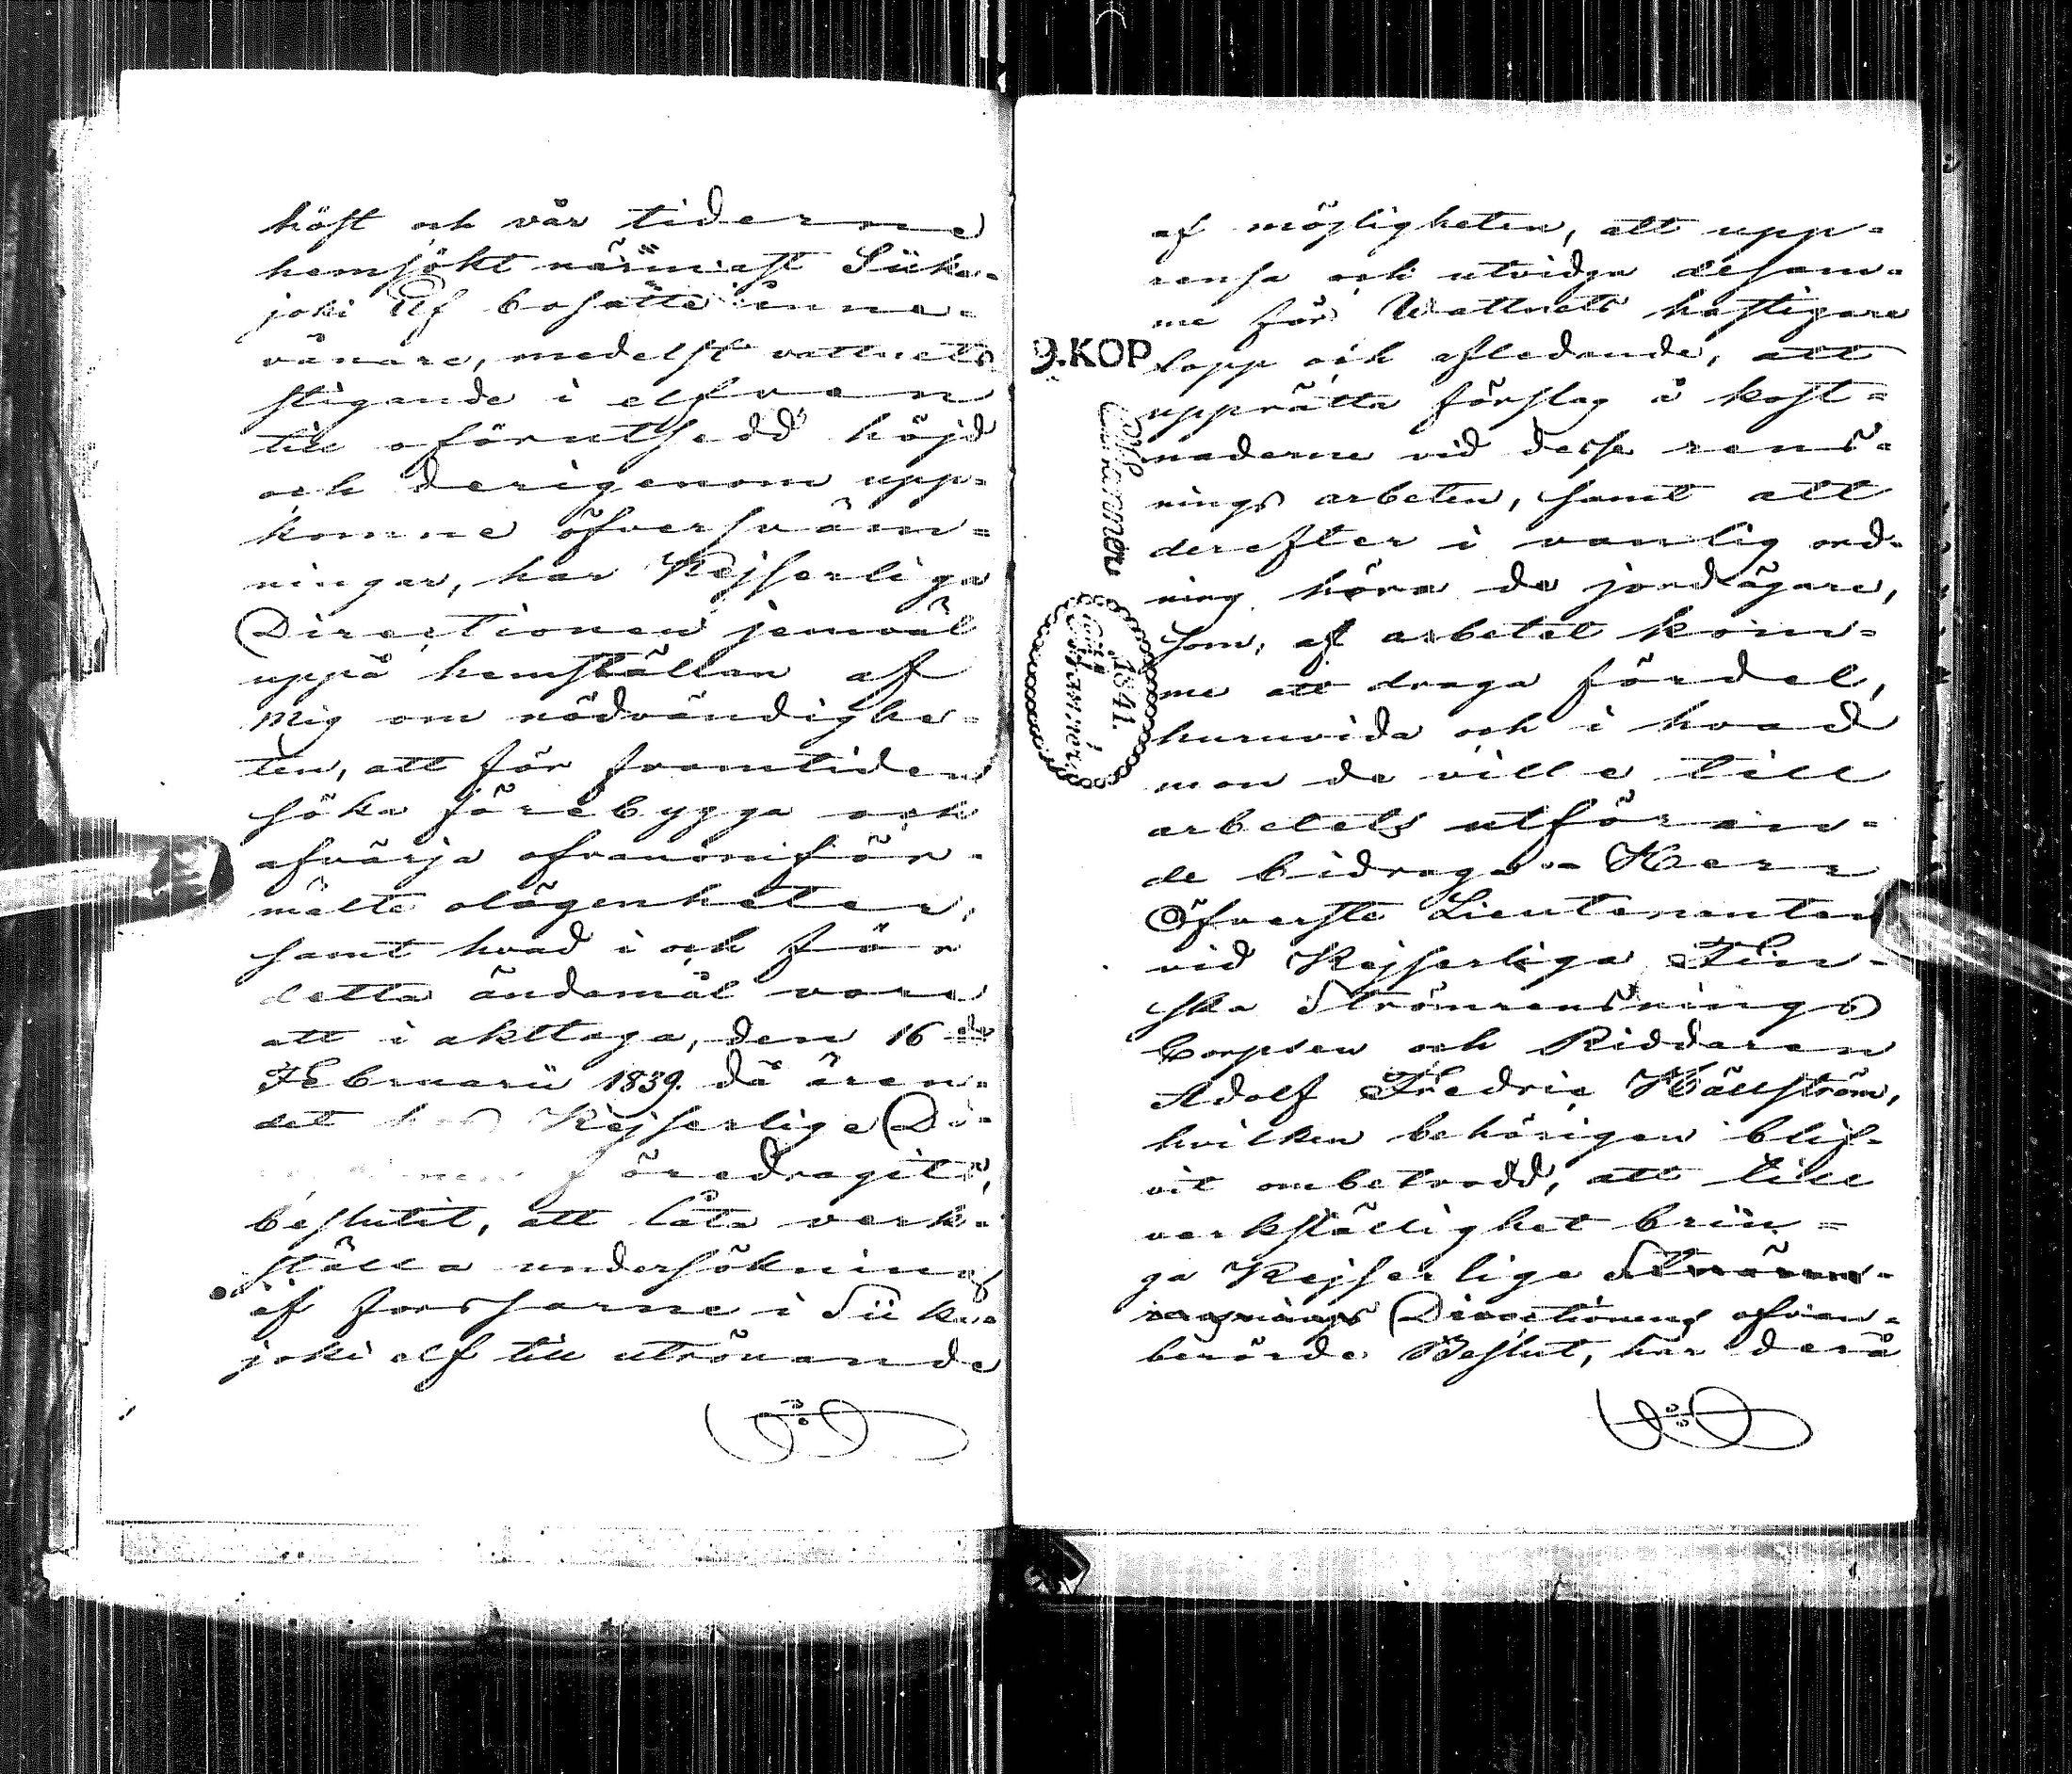 höst och vår tiderne
hemsökt närmast Siika-
joki Elf bosatte inne-
vånare, medelst vattnets
stigande i elfven
till oförutsedd höjd
och derigenom upp-
komne öfversväm-
ningar, har Kejserliga
Directionen jemväl
uppå hemställan af
mig om nödvändighe-
ten, att för framtiden
söka förebygga och
afvärja ofvanomför-
mälte olägenheter,
samt hvad i och för
detta ändamål vore
att i akttaga, den 16de
Februarii 1839. då ären-
det hos Kejserlige Di-
föredragits,
beslutit, att låta verk-
ställa undersökning
af forssarne i Siika-
joki elf till utrönande
af möjligheten, att upp-
rensa och utvidga desam-
me för Wattnets hastigare
lopp och afledande, att
upprätta förslag å kost-
naderne vid desse rens-
nings arbeten, samt att
derefter i vanlig ord-
ning höra de jordägare,
som, af arbetet kom-
me att draga fördel,
huruvida och i hvad
mon de ville till
arbetets utföran-
de bidraga. Herr
Öfverste Lieutenanten
vid Kejserliga Fin-
ska Strömrensnings
Corpsen och Riddaren
Adolf Fredric Hällström,
hvilken behörigen blif-
vit ombetrodd, att till
verkställighet brin-
ga Kejserlige Ström-
rensnings Directionens ofvan-
berörde Beslut, har derå
9.KOP
1841.